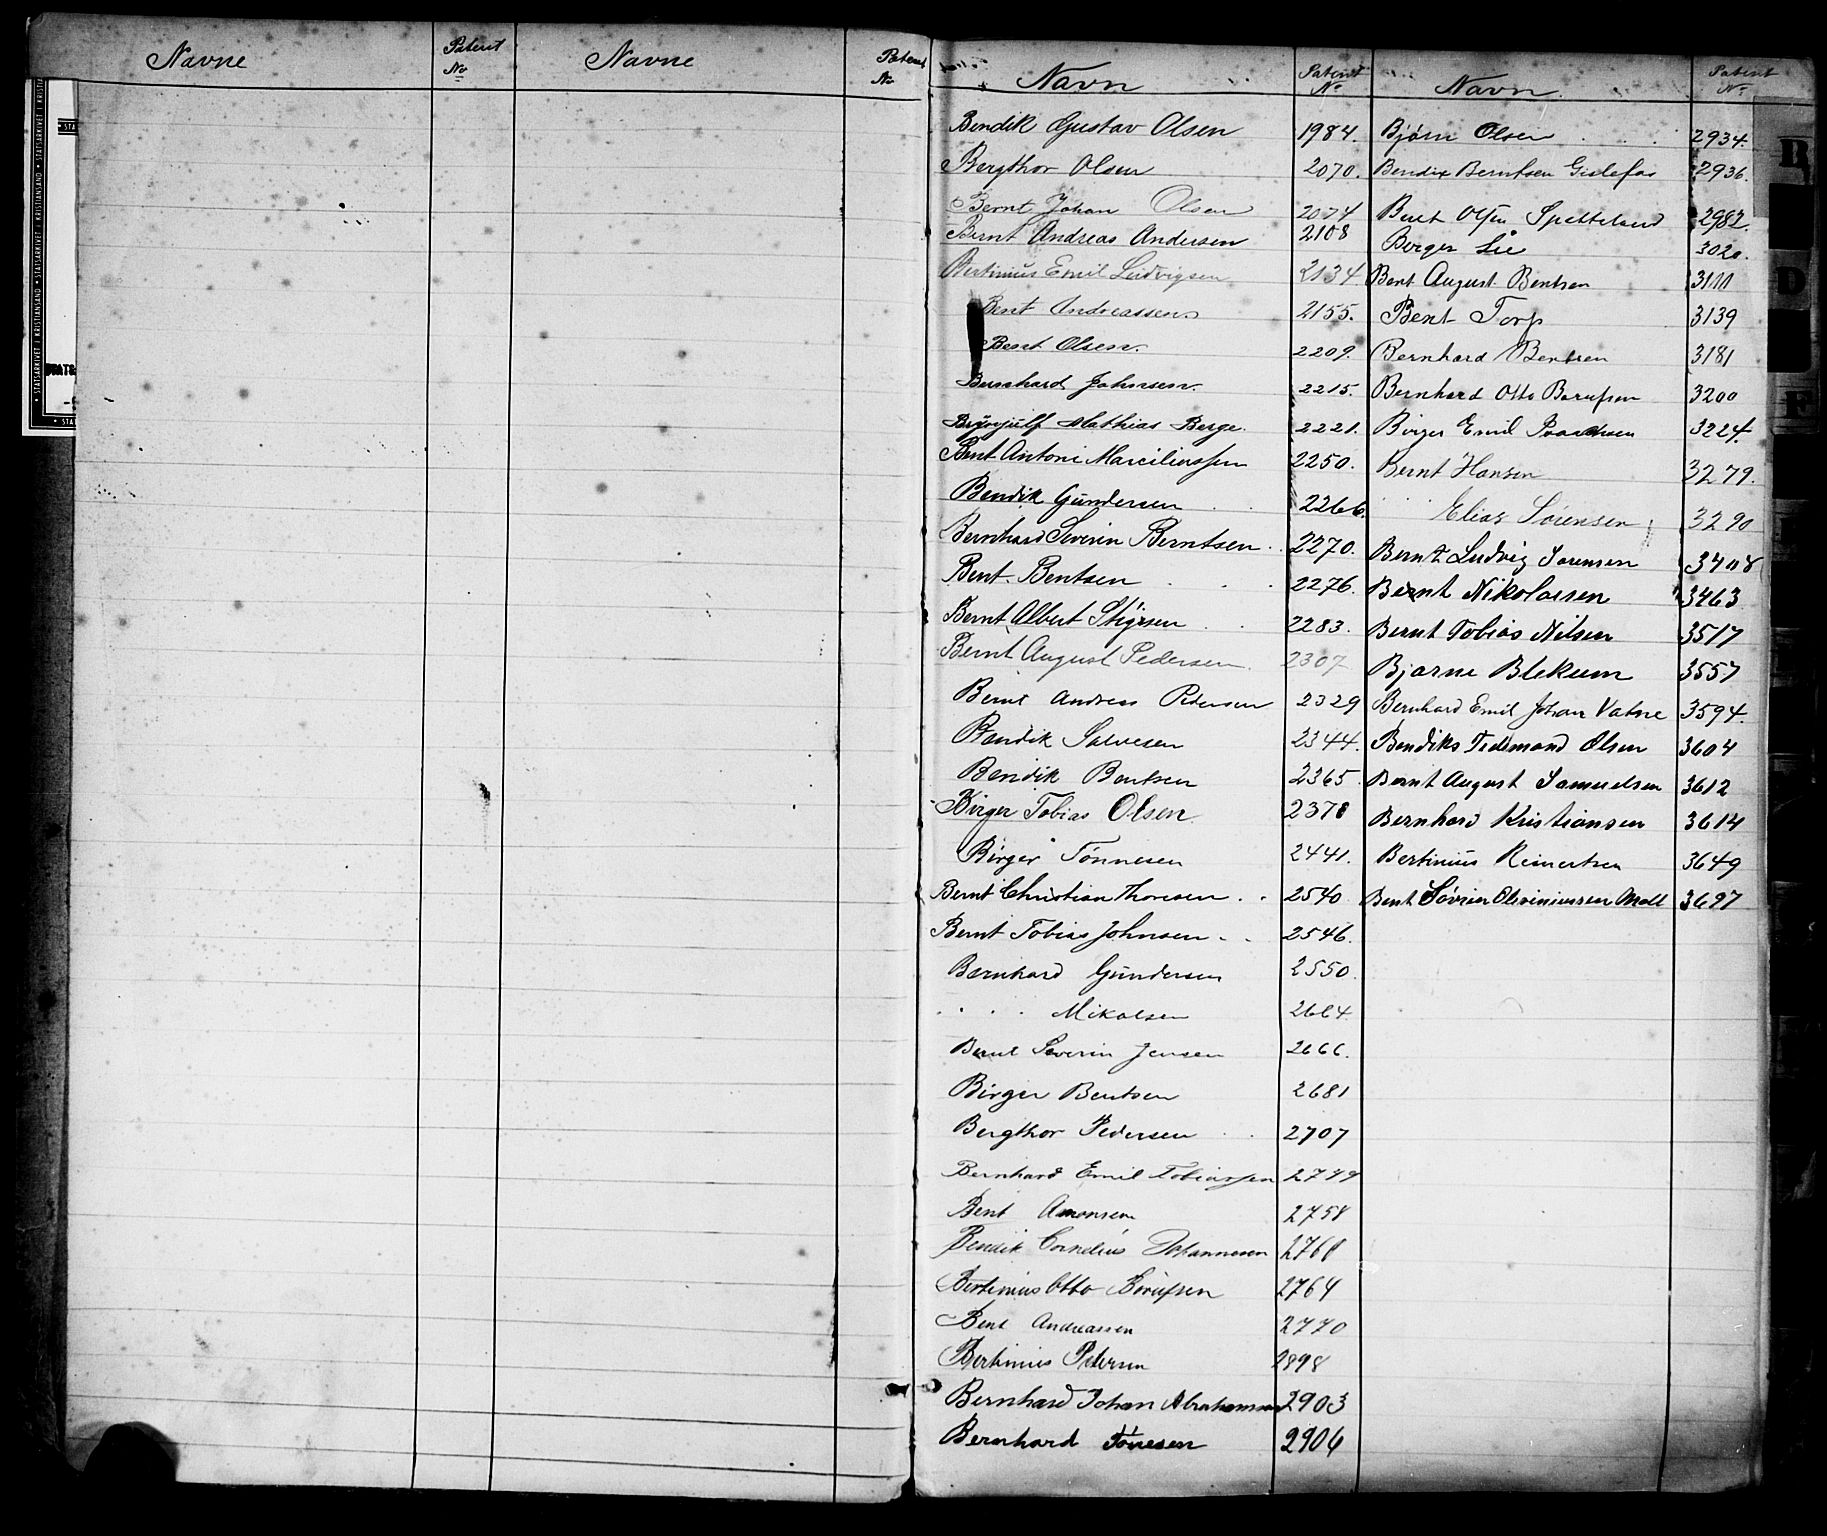 Navne Patent No Navne Patent No
Navn Patent No Navn Patent No
Bendik Gustav Olsen 1984.
Bergthor Olsen 2070.
Bernt Johan Olsen 2074
Bernt Andreas Andersen 2108
Bertinius Emil Ludvigsen 2134
Bent Andreassen 2155.
Bent Olsen. 2209.
Bernhard Johnsen. 2215.
Mathias Berge. 2221.
Bent Antoni Marciliussen 2250.
Bendik Gundersen 2266.
Bernhard Severin Berntsen 2270.
Bent Bentsen 2276.
Bernt Albert Stiguen 2283.
Bernt August Pedersen. 2307
Bernt Andreas Petersen 2329
Bendik Salvesen 2344.
Bendik Bentsen 2365
Birger Tobias Olsen 2378
Birger Tönnesen 2441.
Bernt Christian Thoresen 2540
Bernt Tobias Johnsen 2546.
Bernhard Gundersen 2550.
" " Mikalsen 2664.
Bernt Severin Jensen 2666.
Birger Bentsen 2681
Bergthor Pedersen 2707
Bernhard Emil Tobiassen 2749
Bent Amonsen 2758
Bendik Cornelius Johannesen 2761
Bertinius Otto Borufsen 2764
Bent Andreassen 2770
Bertinius Petersen 2898
Bernhard Johan Abrahamsen 2903
Bernhard Tönesen 2906
Bjørn Olsen 2934.
Bendix Berntsen Gislefos 2936.
Bent Olsen Spetteland 2982.
Berger Lie 3020.
Bent August Bentsen 3111
Bent Torp 3139
Bernhard Bentsen 3181
Bernhard Otto Borufsen 3200
Birger Emil 3224.
Bernt Hansen 3279.
" " Elias Sörensen 3290
Bernt Ludvig Sörensen 3408
Bernt Nikolaisen 3463
Bernt Tobias Nilsen 3517
Bjarne Blekum 3557
Bernhard Emil Johan Vatne 3594.
Bendiks Tidemand Olsen 3604
Bernt August Samuelsen 3612
Bernhard Kristiansen 3614
Bertinius Reinertsen 3649
Bent Sövrin Moll 3697
B
D
F
STATSARKIVET I KRISTIANSAND